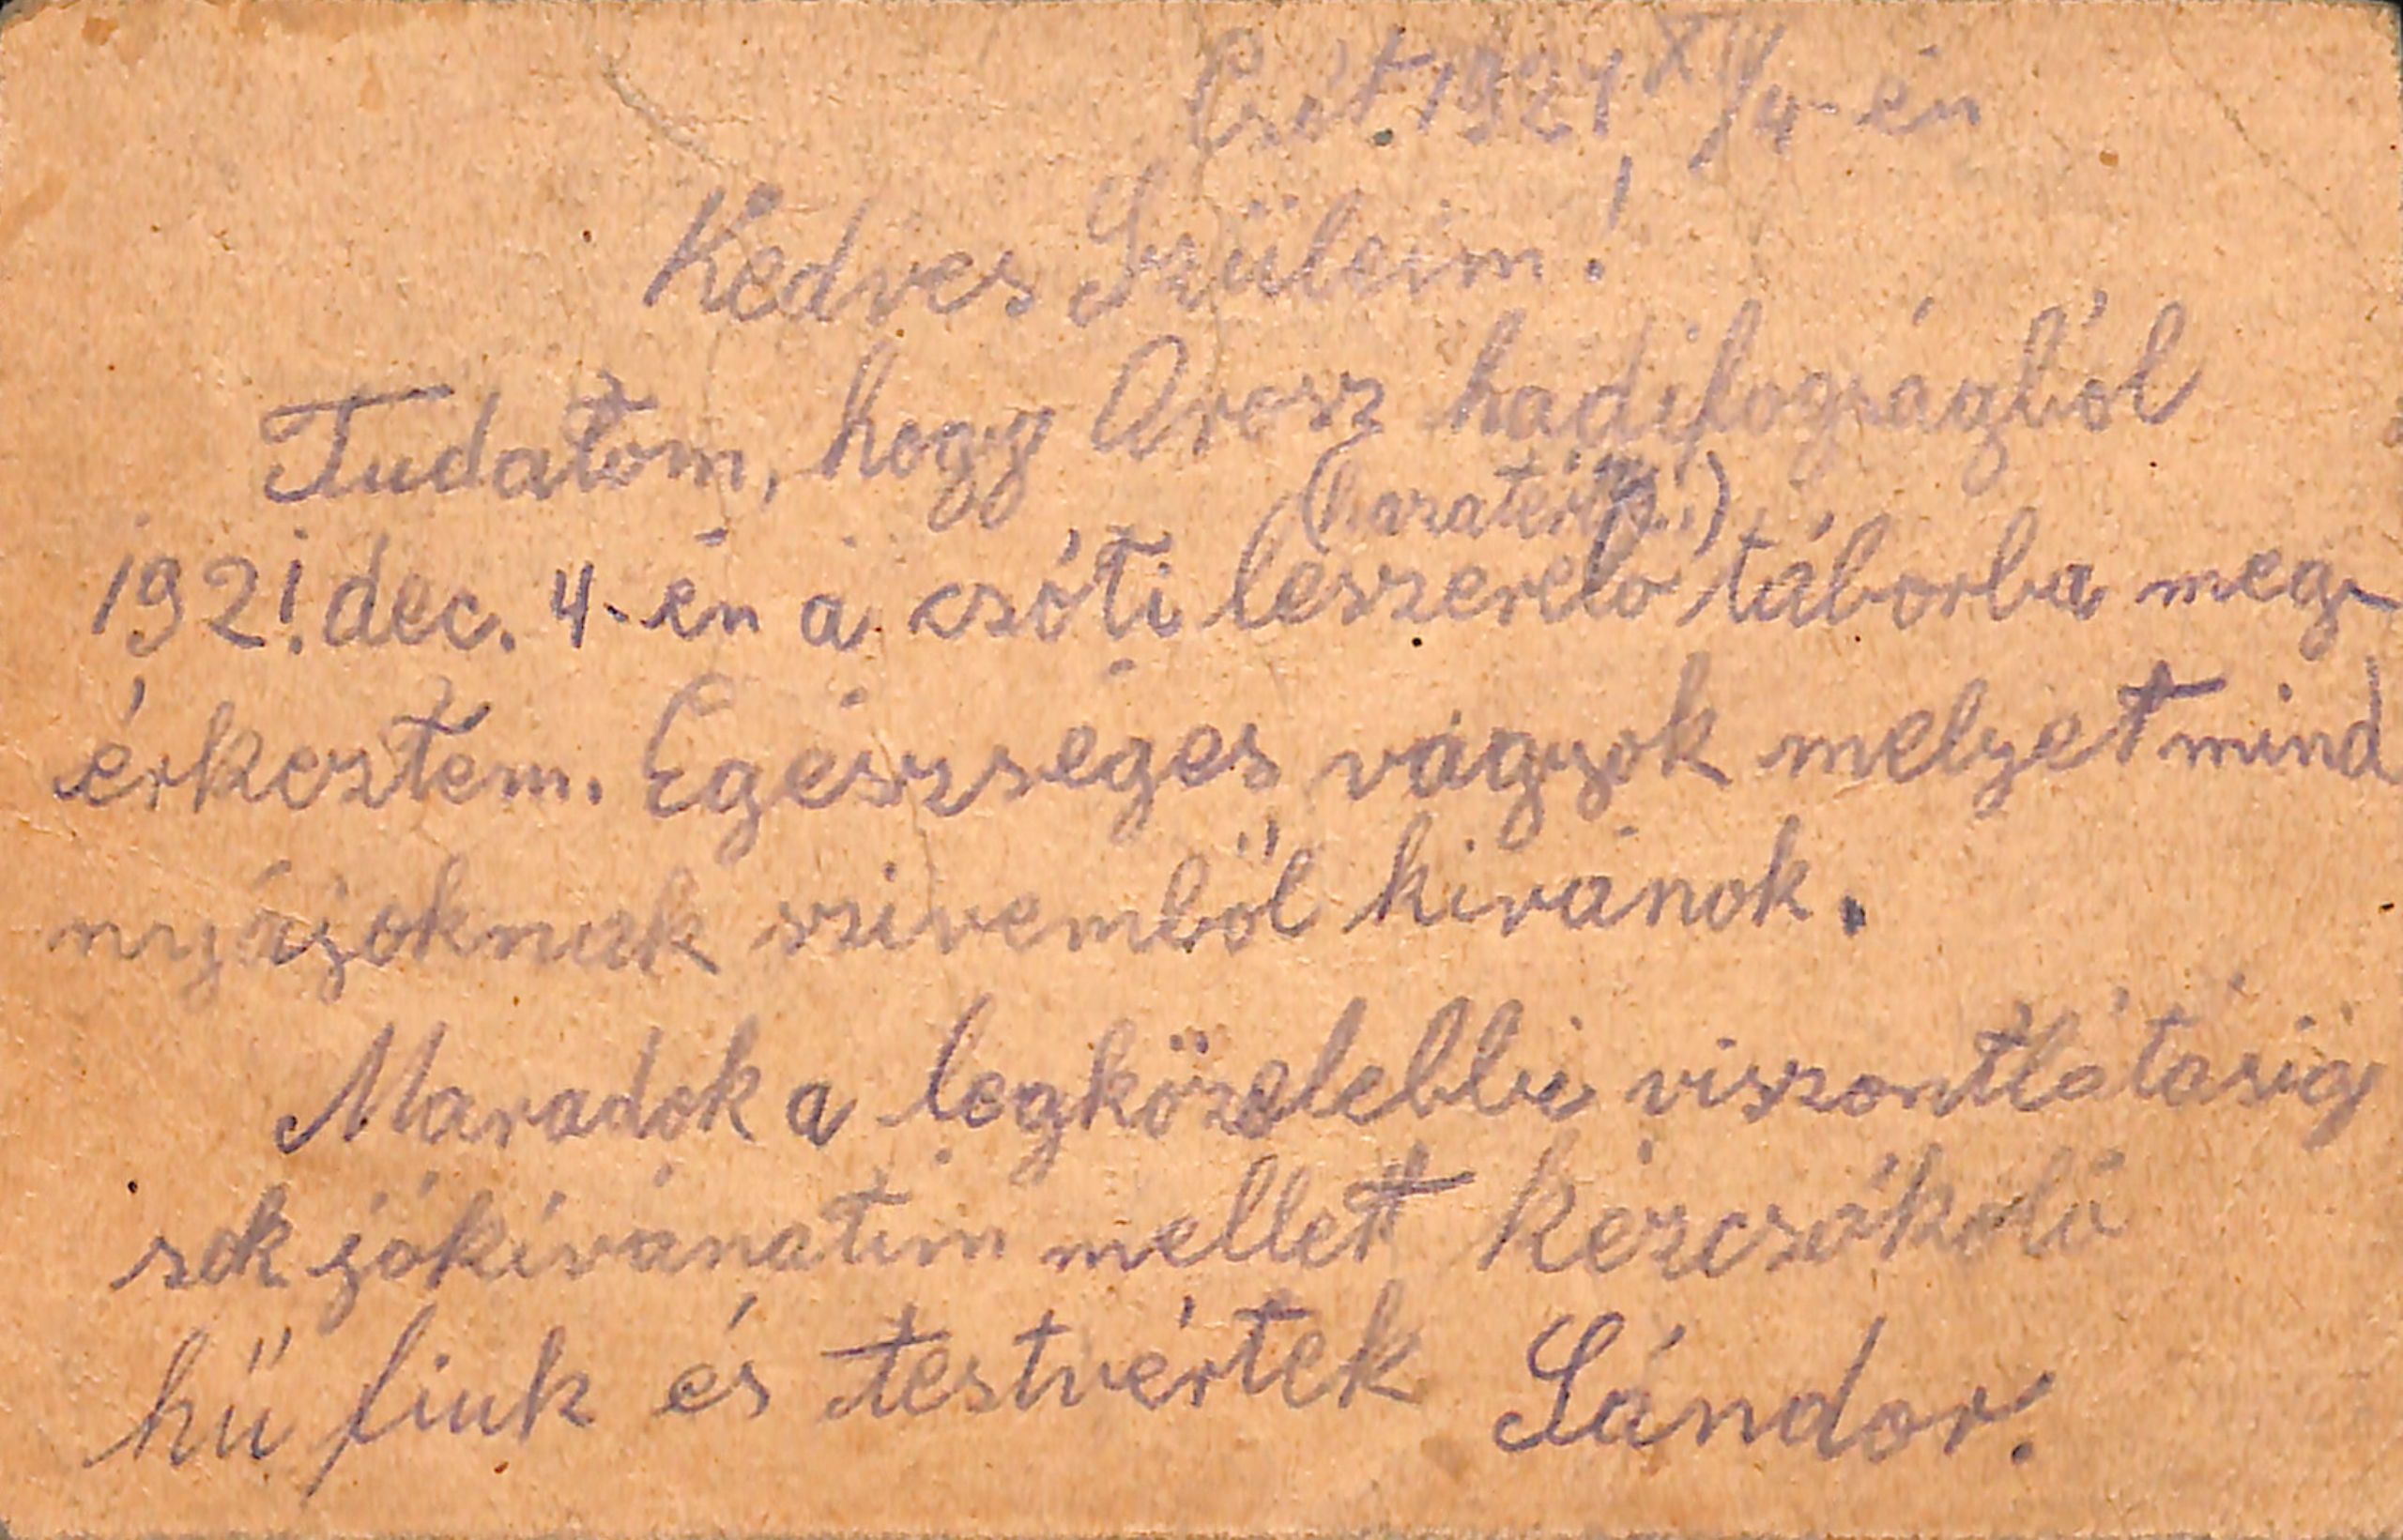 Csót 1921 XII/4-én
Kedves Szüleim!
Tudatom, hogy Orosz hadifogságból
1921. dec. 4-én a csóti leszerelő (hazatérő) táborba meg-
érkeztem. Egészséges vagyok melyet mind
nyájoknak szivemből kivánok.
Maradok a legközelebbi viszontlátásig
sok jókívánatim mellett kézcsókoló
hű fiuk és testvértek Sándor.